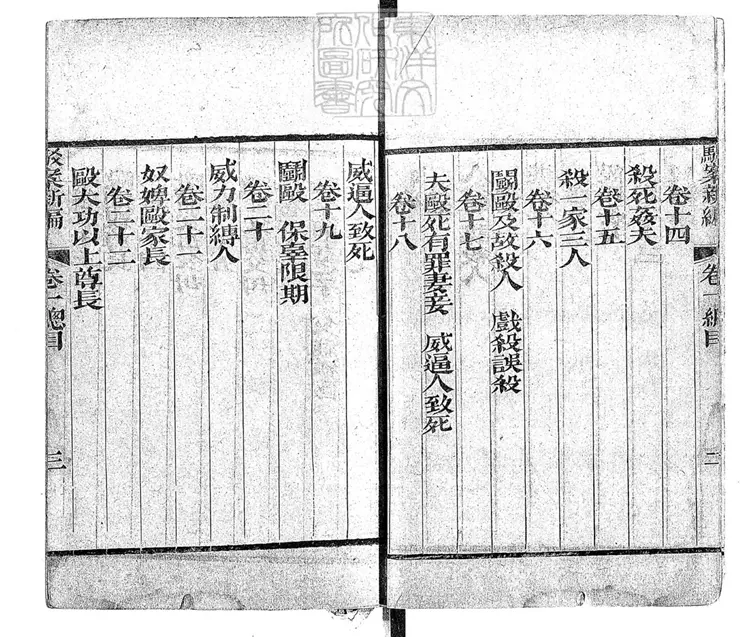 東洋文
化研究
所圖書
駁案新編 卷一總目 二
卷十四
殺死姦夫
卷十五
殺一家三人
卷十六
鬬毆及故殺人 戲殺誤殺
卷十七
夫毆死有罪妻妾 威逼人致死
卷十八
威逼人致死
卷十九
鬬毆 保辜限期
卷二十
威力制縛人
卷二十一
奴婢毆家長
卷二十二
毆大功以上尊長
駁案新編 卷一總目 三